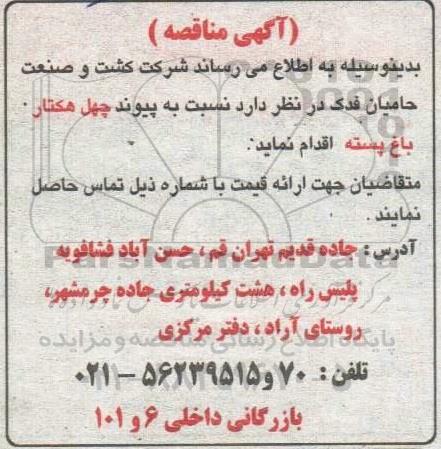 (آگهی مناقصه)
بدینوسیله به اطلاع می رساند شرکت کشت و صنعت
حامیان فدک در نظر دارد نسبت به پیوند چهل هکتار
باغ پسته اقدام نماید.
متقاضیان جهت ارائه قیمت با شماره ذیل تماس حاصل
نمایند.
آدرس: جاده قدیم تهران قم، حسن آباد فشافویه
پلیس راه، هشت کیلومتری جاده چرمشهر،
روستای آراد، دفتر مرکزی
تلفن: ۷۰ و ۵۶۲۳۹۵۱۵ - ۰۲۱
بازرگانی داخلی ۶ و ۱۰۱
ParsNamadData
پایگاه اطلاع رسانی مناقصه و مزایده